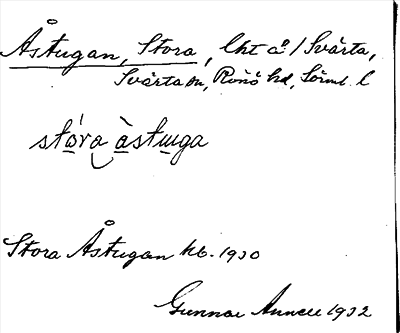 Åstugan, Stora, lht å/ Svärta,
Svärta sn, Rönö hd, Sörml. l
stóra àstuga
Stora Åstugan kb. 1930
Gunnar 1932